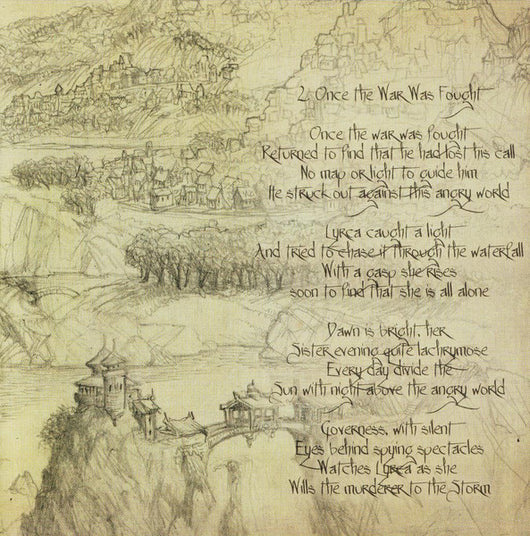 2. Once the War Was Fought
Once the war was fought
Returned to find that he had lost his call
No map or light to guide him
He struck out against this angry world
Lyrca caught a light
And tried to chase it through the waterfall
With a gasp she rises
soon to find that she is all alone
Dawn is bright, her
Sister evening quite lachrymose
Every day divide the
Sun with night above the angry world
Governess, with silent
Eyes behind spying spectacles
Watches Lyrca as she
Wills the murderer to the Storm